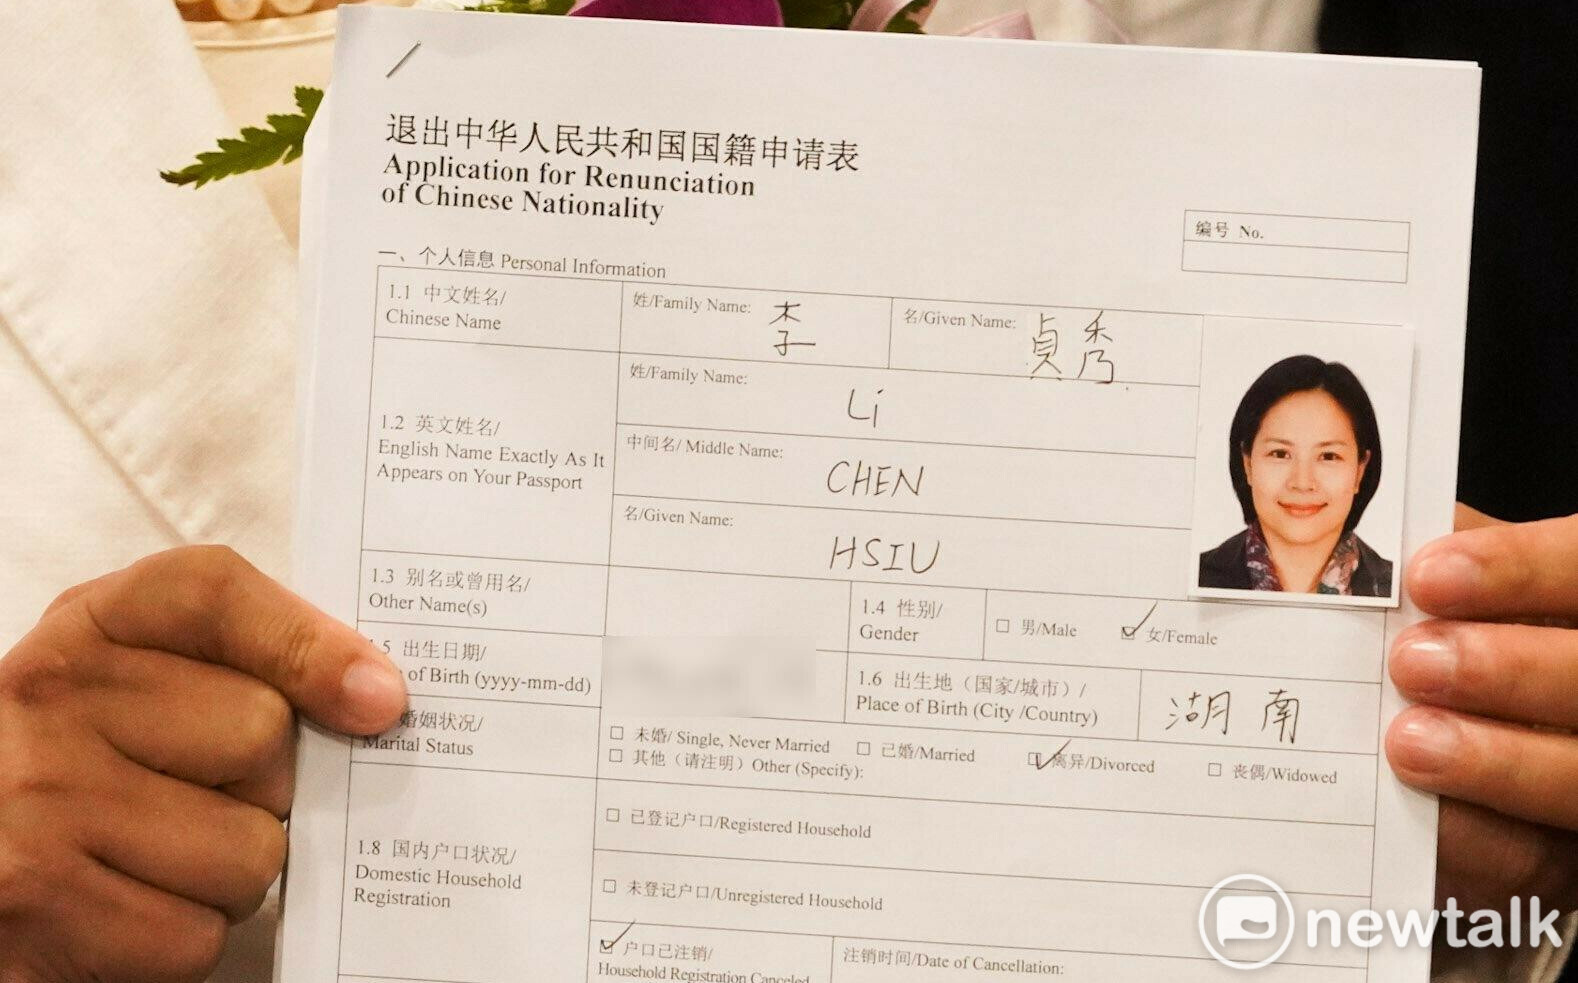 退出中华人民共和国国籍申请表
Application for Renunciation
of Chinese Nationality
编号 No.
一、个人信息 Personal Information
1.1 中文姓名/
Chinese Name
姓/Family Name: 李
名/Given Name: 貞秀
1.2 英文姓名/
English Name Exactly As It
Appears on Your Passport
姓/Family Name:
Li
中间名/ Middle Name:
CHEN
名/Given Name:
HSIU
1.3 别名或曾用名/
Other Name(s)
1.4 性别/
Gender
□ 男/Male
☑ 女/Female
.5 出生日期/
of Birth (yyyy-mm-dd)
1.6 出生地（国家/城市）/
Place of Birth (City /Country)
湖南
婚姻状况/
Marital Status
□ 未婚/ Single, Never Married □ 已婚/Married ☑ 离异/Divorced □ 丧偶/Widowed
□ 其他（请注明）Other (Specify):
1.8 国内户口状况/
Domestic Household
Registration
□ 已登记户口/Registered Household
□ 未登记户口/Unregistered Household
☑ 户口已注销/
Household Registration Canceled
注销时间/Date of Cancellation:
newtalk